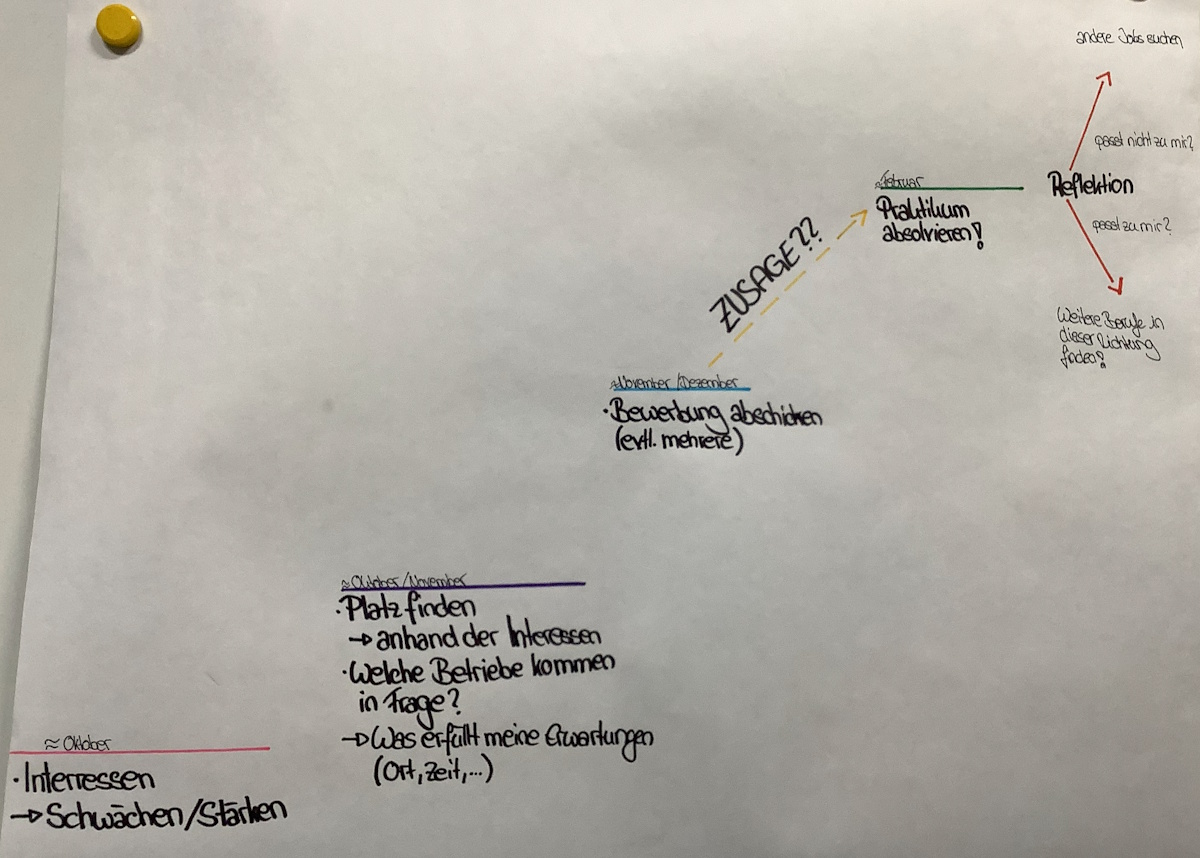 ≈ Oktober
· Interressen
→ Schwächen/Stärken
≈ Oktober/November
· Platz finden
→ anhand der Interessen
· Welche Betriebe kommen
in Frage?
→ Was erfüllt meine Erwartungen
(Ort, Zeit,...)
≈ November/Dezember
· Bewerbung abschicken
(evtl. mehrere)
ZUSAGE??
≈ Februar
Praktikum
absolvieren!
Reflektion
passt nicht zu mir?
andere Jobs suchen
passt zu mir?
Weitere Berufe in
dieser Richtung
finden?